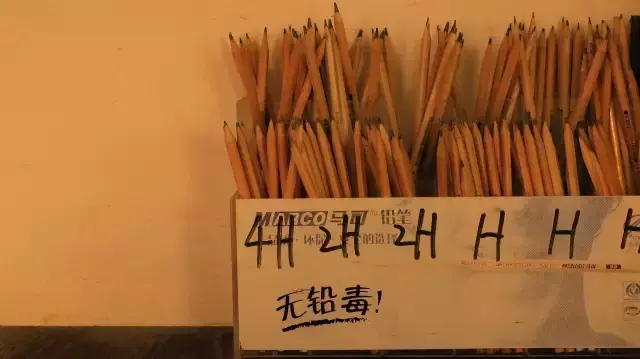 MARCO马可 铅笔
4H 2H 2H H H H
无铅毒!